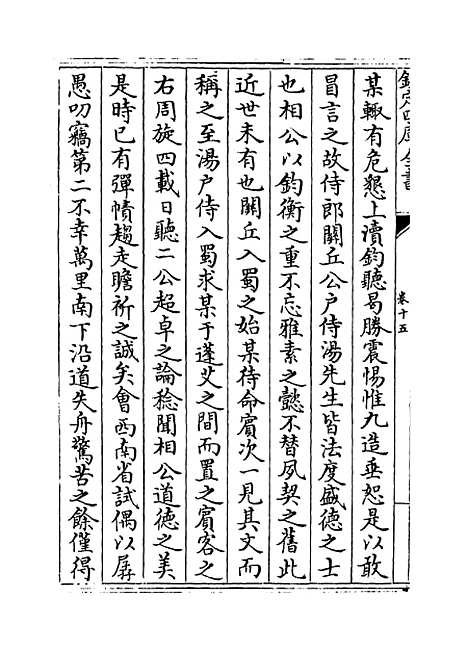 欽定四庫全書
卷十五
某輙有危懇上瀆鈞聽曷勝震惕惟九造垂恕是以敢
冒言之故侍郎關丘公户侍湯先生皆法度盛德之士
也相公以鈞衡之重不忘雅素之懿不替夙契之舊此
近世未有也關丘入蜀之始某待命賓次一見其文而
稱之至湯户侍入蜀求某于蓬艾之間而置之賓客之
右周旋四載日聽二公超卓之論稔聞相公道德之美
是時已有彈幘趨走瞻祈之誠矣會西南省試偶以孱
愚叨竊第二不幸萬里南下沿道失舟驚苦之餘僅得